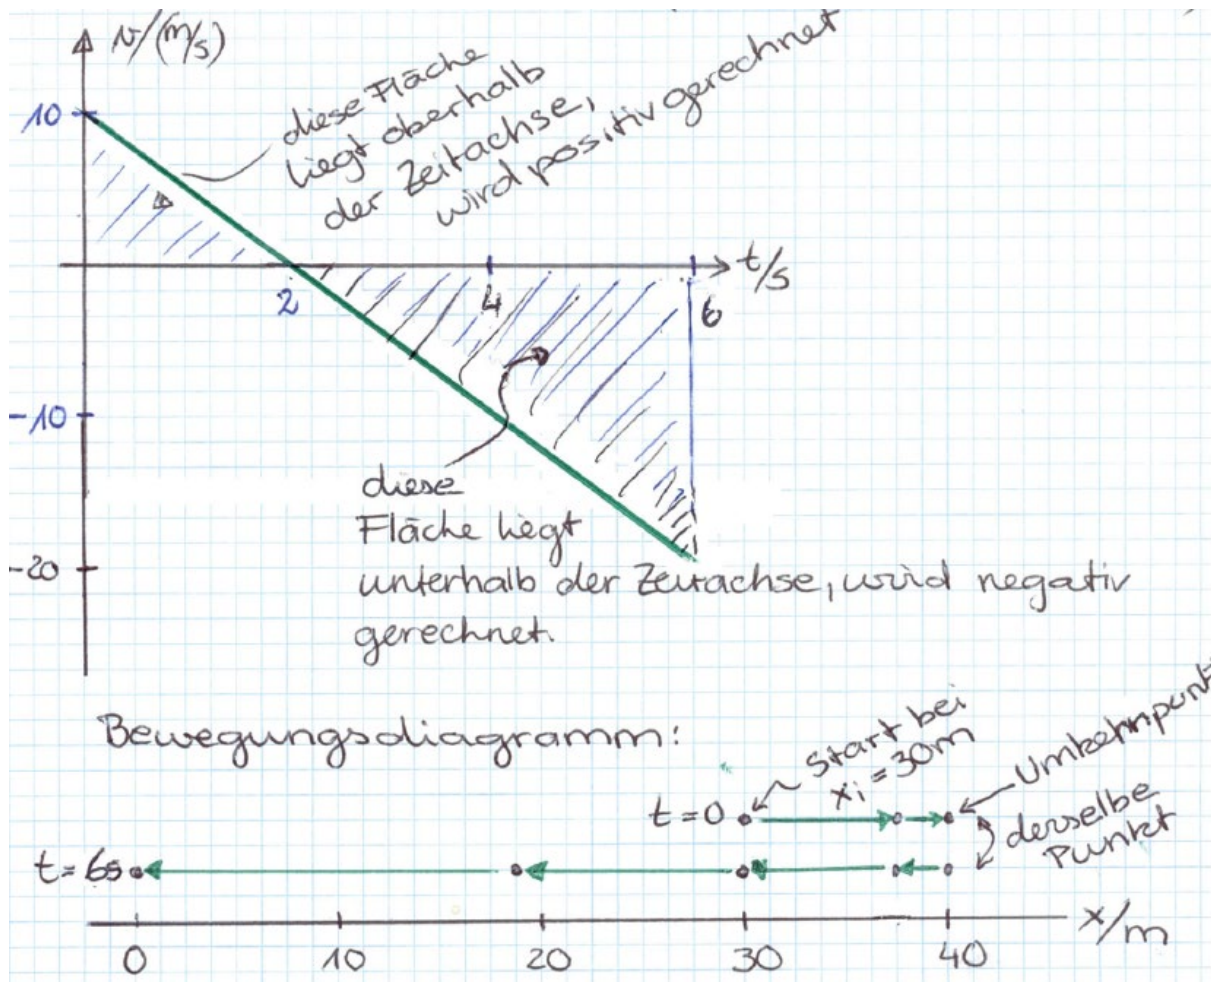 v/(m/s)
10
diese Fläche
liegt oberhalb
der Zeitachse,
wird positiv gerechnet
t/s
2
4
6
-10
diese
Fläche liegt
unterhalb der Zeitachse, wird negativ
gerechnet.
-20
Bewegungsdiagramm:
Start bei
xi = 30m
Umkehrpunkt
t=0
derselbe
Punkt
t=6s
x/m
0
10
20
30
40